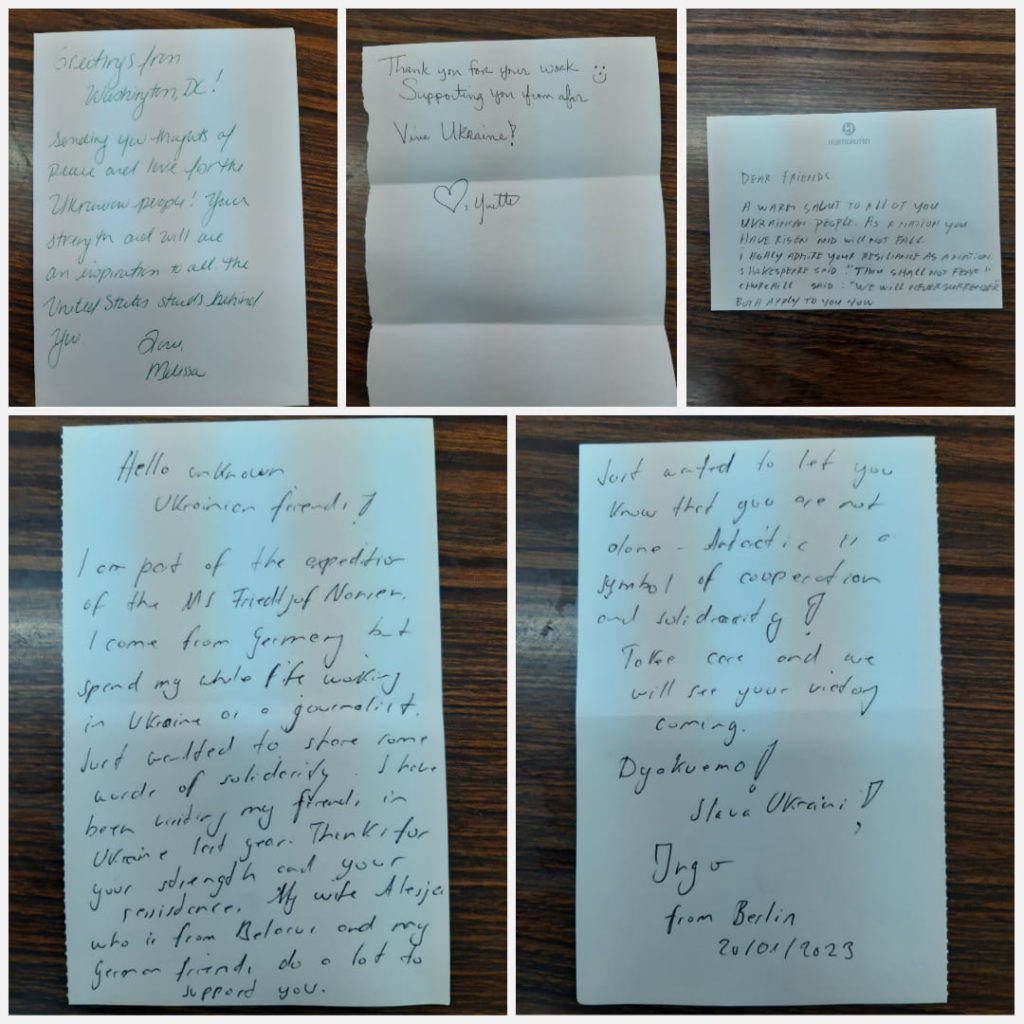 Greetings from
Washington, DC!
Sending you thoughts of
peace and love for the
Ukrainian people! Your
strength and will are
an inspiration to all. The
United States stands behind
you.
Melissa
Thank you for your work
Supporting you from afar
Viva Ukraine!
, Yvette
HURTIGRUTEN
DEAR FRIENDS
A WARM SALUT TO ALL OF YOU
UKRAINIAN PEOPLE. AS A NATION YOU
HAVE RISEN AND WILL NOT FALL
I HIGHLY ADMIRE YOUR RESILIANCE AS A NATION.
SHAKESPEARE SAID: "THOU SHALL NOT FEAR"
CHURCHILL SAID: "WE WILL NEVER SURRENDER"
BOTH APPLY TO YOU NOW
Hello unknown
Ukrainian friends!
I am part of the expedition
of the MS Friedtjof Nansen.
I come from Germany but
spend my whole life working
in Ukraine as a journalist.
Just wanted to share some
words of solidarity. I have
been visiting my friends in
Ukraine last year. Thanks for
your strength and your
resistance. My wife Alesja
who is from Belarus and my
German friends do a lot to
support you.
Just wanted to let you
know that you are not
alone - Antarctic is a
symbol of cooperation
and solidarity!
Take care and we
will see your victory
coming.
Dyakuemo!
Slava Ukraini!
Ingo
from Berlin
20/01/2023